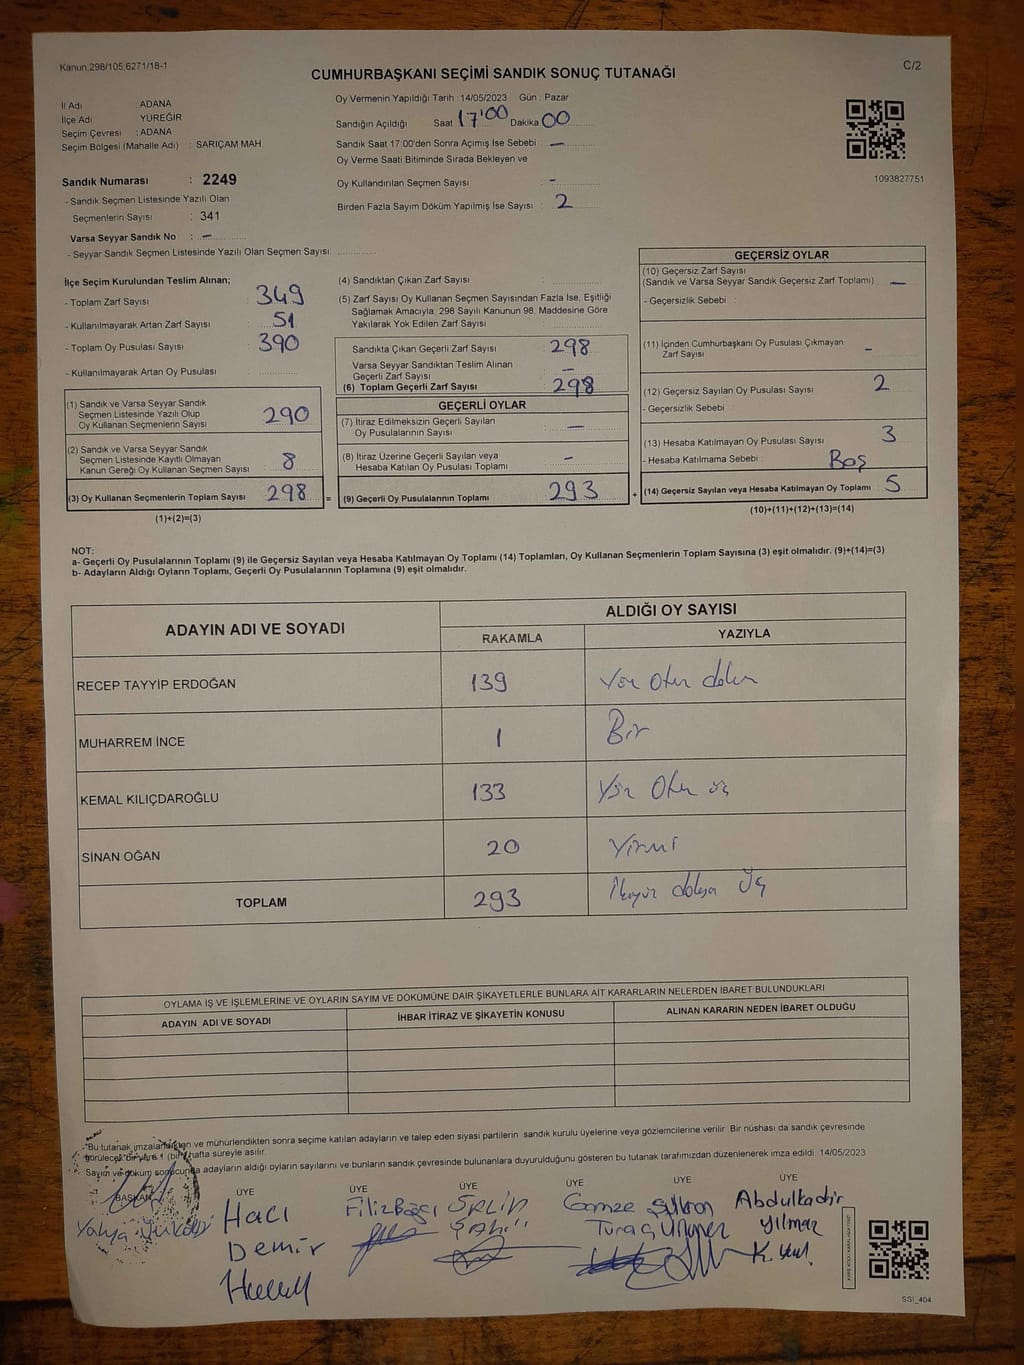 Kanun:298/105;6271/18-1
C/2
CUMHURBAŞKANI SEÇİMİ SANDIK SONUÇ TUTANAĞI
İl Adı : ADANA
İlçe Adı : YÜREĞİR
Seçim Çevresi : ADANA
Seçim Bölgesi (Mahalle Adı) : SARIÇAM MAH.
Sandık Numarası : 2249
- Sandık Seçmen Listesinde Yazılı Olan
Seçmenlerin Sayısı : 341
Varsa Seyyar Sandık No : –
- Seyyar Sandık Seçmen Listesinde Yazılı Olan Seçmen Sayısı:
Oy Vermenin Yapıldığı Tarih : 14/05/2023 Gün : Pazar
Sandığın Açıldığı Saat 17'00 Dakika 00
Sandık Saat 17.00'den Sonra Açımış İse Sebebi : –
Oy Verme Saati Bitiminde Sırada Bekleyen ve
Oy Kullandırılan Seçmen Sayısı : –
Birden Fazla Sayım Döküm Yapılmış İse Sayısı : 2
1093827751
İlçe Seçim Kurulundan Teslim Alınan;
- Toplam Zarf Sayısı : 349
- Kullanılmayarak Artan Zarf Sayısı : 51
- Toplam Oy Pusulası Sayısı : 390
- Kullanılmayarak Artan Oy Pusulası :
(1) Sandık ve Varsa Seyyar Sandık
Seçmen Listesinde Yazılı Olup
Oy Kullanan Seçmenlerin Sayısı : 290
(2) Sandık ve Varsa Seyyar Sandık
Seçmen Listesinde Kayıtlı Olmayan
Kanun Gereği Oy Kullanan Seçmen Sayısı : 8
(3) Oy Kullanan Seçmenlerin Toplam Sayısı : 298
(1)+(2)=(3)
(4) Sandıktan Çıkan Zarf Sayısı :
(5) Zarf Sayısı Oy Kullanan Seçmen Sayısından Fazla İse, Eşitliği
Sağlamak Amacıyla, 298 Sayılı Kanunun 98. Maddesine Göre
Yakılarak Yok Edilen Zarf Sayısı :
Sandıkta Çıkan Geçerli Zarf Sayısı : 298
Varsa Seyyar Sandıktan Teslim Alınan
Geçerli Zarf Sayısı : –
(6) Toplam Geçerli Zarf Sayısı : 298
=
GEÇERLİ OYLAR
(7) İtiraz Edilmeksizin Geçerli Sayılan
Oy Pusulalarının Sayısı : –
(8) İtiraz Üzerine Geçerli Sayılan veya
Hesaba Katılan Oy Pusulası Toplamı : –
(9) Geçerli Oy Pusulalarının Toplamı : 293
+
GEÇERSİZ OYLAR
(10) Geçersiz Zarf Sayısı
(Sandık ve Varsa Seyyar Sandık Geçersiz Zarf Toplamı) : –
- Geçersizlik Sebebi :
(11) İçinden Cumhurbaşkanı Oy Pusulası Çıkmayan
Zarf Sayısı : –
(12) Geçersiz Sayılan Oy Pusulası Sayısı : 2
- Geçersizlik Sebebi :
(13) Hesaba Katılmayan Oy Pusulası Sayısı : 3
- Hesaba Katılmama Sebebi : Boş
(14) Geçersiz Sayılan veya Hesaba Katılmayan Oy Toplamı : 5
(10)+(11)+(12)+(13)=(14)
NOT:
a- Geçerli Oy Pusulalarının Toplamı (9) ile Geçersiz Sayılan veya Hesaba Katılmayan Oy Toplamı (14) Toplamları, Oy Kullanan Seçmenlerin Toplam Sayısına (3) eşit olmalıdır. (9)+(14)=(3)
b- Adayların Aldığı Oyların Toplamı, Geçerli Oy Pusulalarının Toplamına (9) eşit olmalıdır.
ADAYIN ADI VE SOYADI
ALDIĞI OY SAYISI
RAKAMLA YAZIYLA
RECEP TAYYİP ERDOĞAN 139 Yüz Otuz dokuz
MUHARREM İNCE 1 Bir
KEMAL KILIÇDAROĞLU 133 Yüz Otuz üç
SİNAN OĞAN 20 Yirmi
TOPLAM 293 İkiyüz doksan Üç
OYLAMA İŞ VE İŞLEMLERİNE VE OYLARIN SAYIM VE DÖKÜMÜNE DAİR ŞİKAYETLERLE BUNLARA AİT KARARLARIN NELERDEN İBARET BULUNDUKLARI
ADAYIN ADI VE SOYADI İHBAR İTİRAZ VE ŞİKAYETİN KONUSU ALINAN KARARIN NEDEN İBARET OLDUĞU
*Bu tutanak imzalandıktan ve mühürlendikten sonra seçime katılan adayların ve talep eden siyasi partilerin sandık kurulu üyelerine veya gözlemcilerine verilir. Bir nüshası da sandık çevresinde
görülecek bir yere 1 (bir) hafta süreyle asılır.
Sayım ve döküm sonucunda adayların aldığı oyların sayılarını ve bunların sandık çevresinde bulunanlara duyurulduğunu gösteren bu tutanak tarafımızdan düzenlenerek imza edildi. 14/05/2023
BAŞKAN ÜYE ÜYE ÜYE ÜYE ÜYE ÜYE
Yahya
Hacı
Demir
Filiz
Gamze
Abdulkadir
Yılmaz
SSI_404